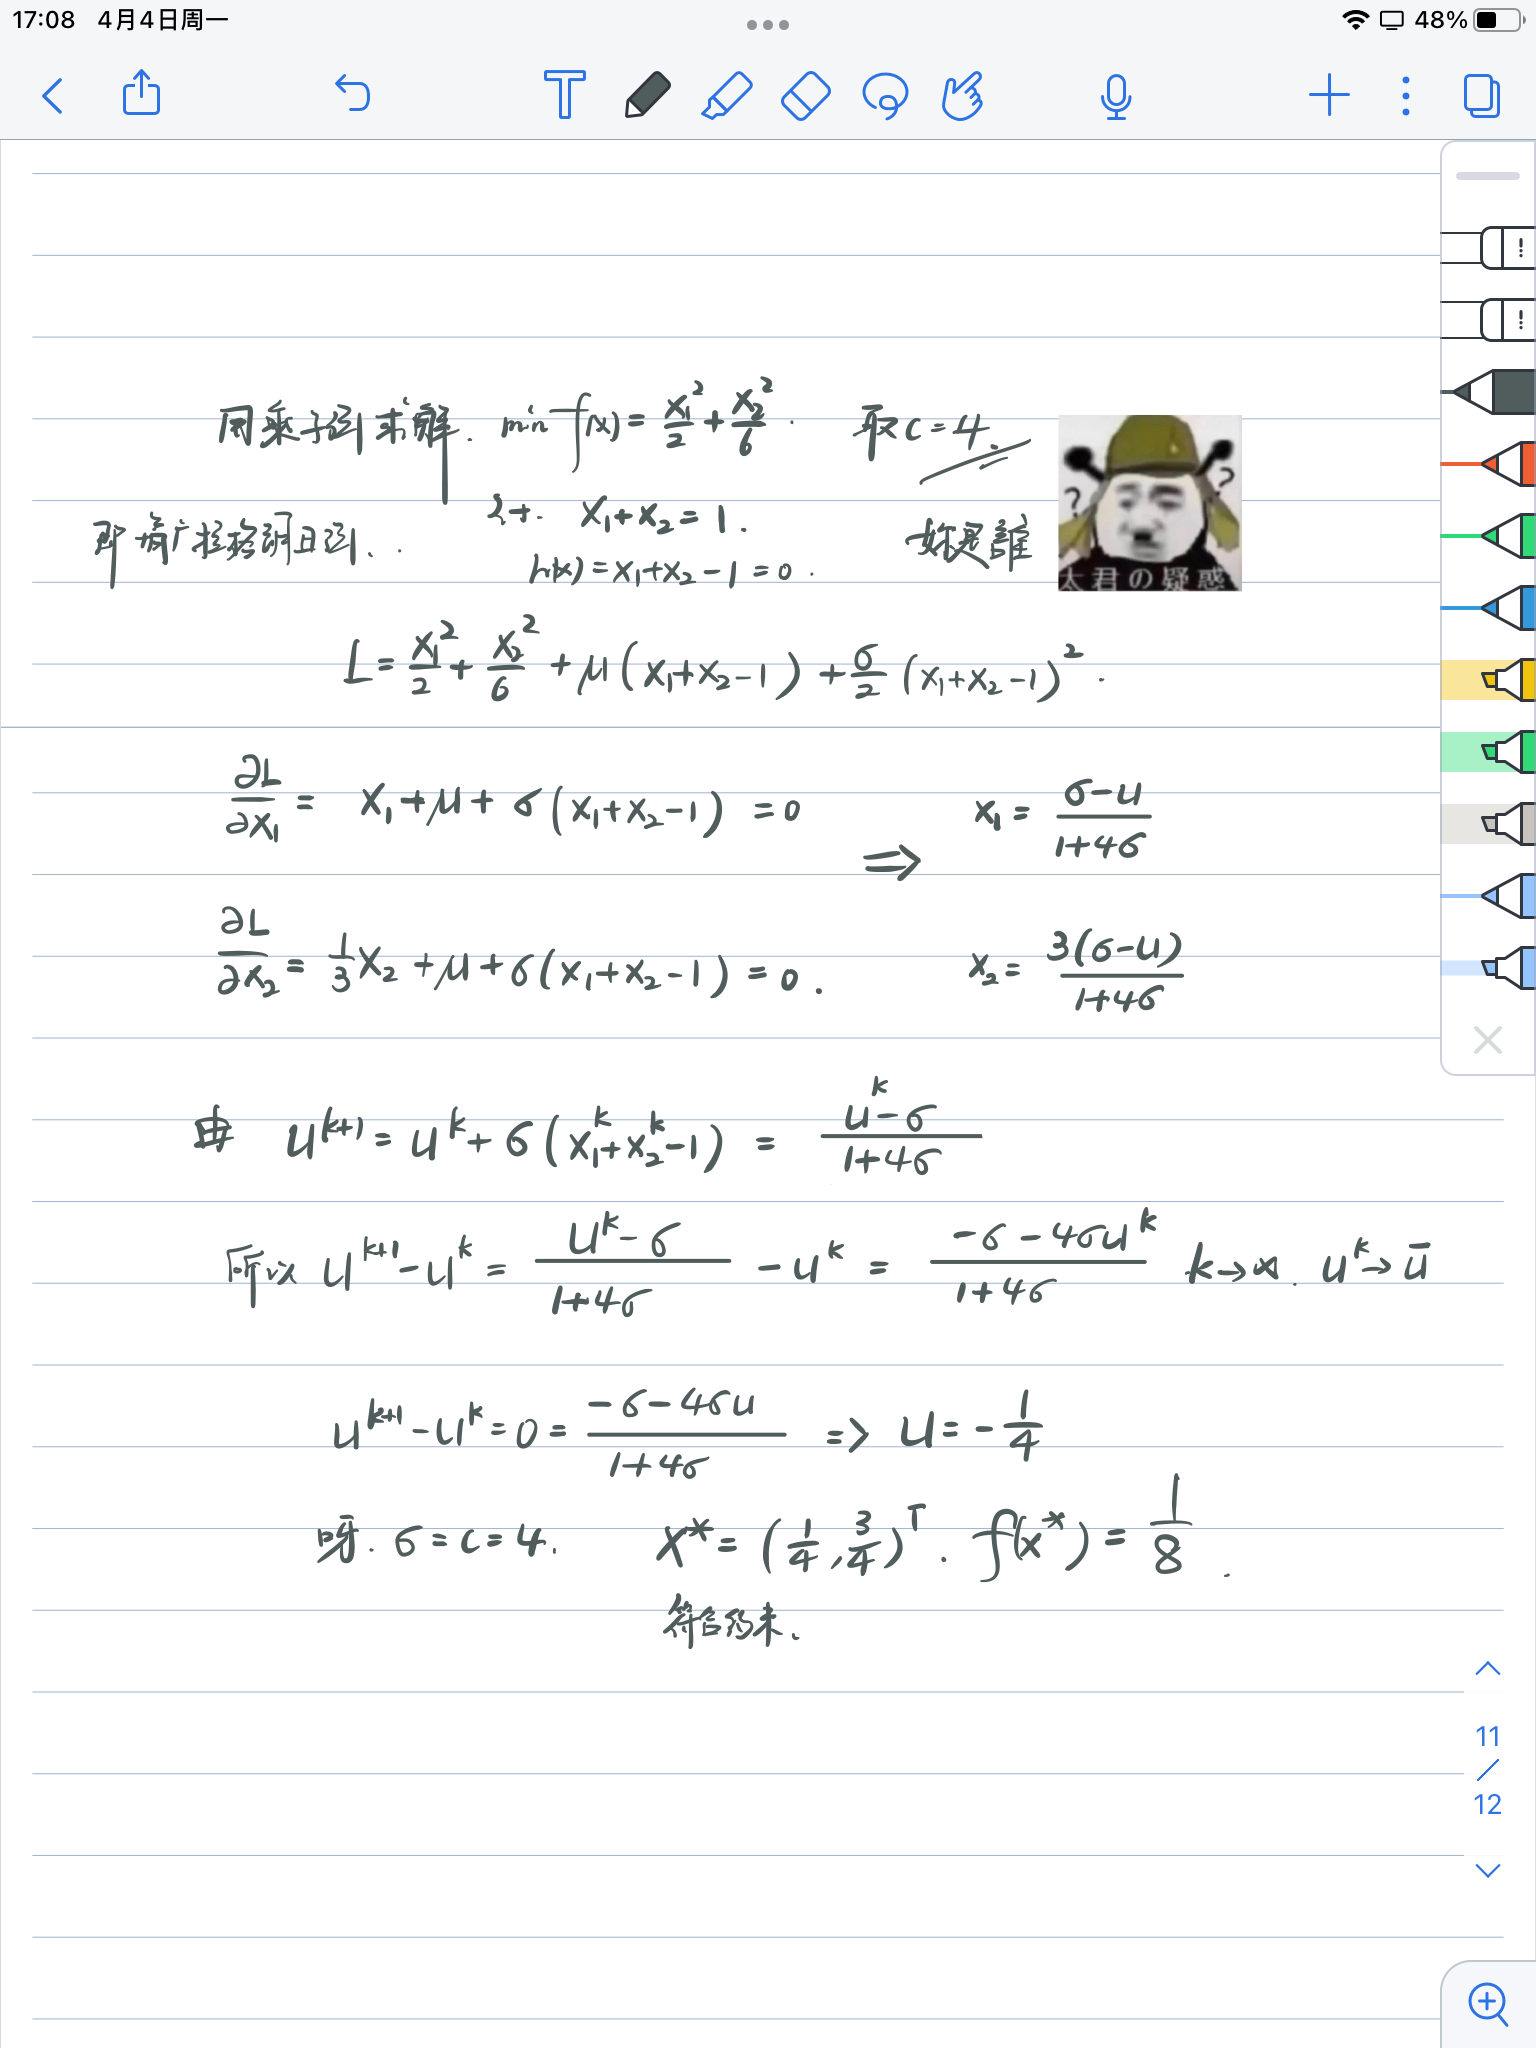 17:08 4月4日周一 48%
用乘子法求解. min f(x) = x₁²/2 + x₂²/6. 取c=4.
s.t. x₁+x₂=1.
即增广拉格朗日法.. 妳是誰
h(x)=x₁+x₂-1=0.
? ?
太君の疑惑
L = x₁²/2 + x₂²/6 + μ(x₁+x₂-1) + σ/2 (x₁+x₂-1)².
∂L/∂x₁ = x₁+μ+σ(x₁+x₂-1) = 0 ⇒ x₁ = (σ-u)/(1+4σ)
∂L/∂x₂ = 1/3 x₂+μ+σ(x₁+x₂-1) = 0. x₂ = 3(σ-u)/(1+4σ)
由 u^{k+1} = u^k + σ(x₁^k+x₂^k-1) = (u^k-σ)/(1+4σ)
所以 u^{k+1}-u^k = (u^k-σ)/(1+4σ) - u^k = (-σ-4σu^k)/(1+4σ) k→∞. u^k→ū
u^{k+1}-u^k=0= (-σ-4σu)/(1+4σ) => u=-1/4
呀. σ=c=4. x*=(1/4,3/4)^T. f(x*)=1/8.
符合约束.
11
/
12